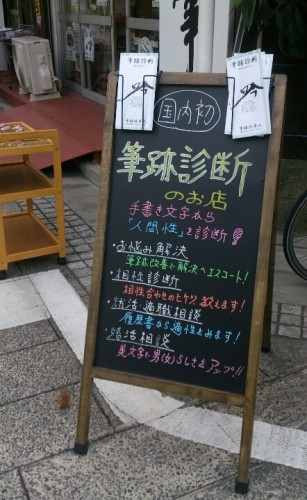 筆跡診断
吟
国内初
筆跡診断
のお店
手書き文字から
「人間性」を診断!!
・お悩み解決
筆跡改善で解決へエスコート!
・相性診断
相性合わせのヒケツ教えます!
・就活・適職相談
履歴書から適性をみます!
・婚活相談
美文字で男(女)らしさをアップ!!